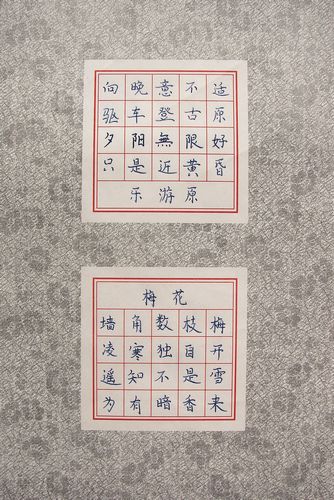 向晚意不适
驱车登古原
夕阳無限好
只是近黄昏
乐游原
梅花
墙角数枝梅
凌寒独自开
遥知不是雪
为有暗香来